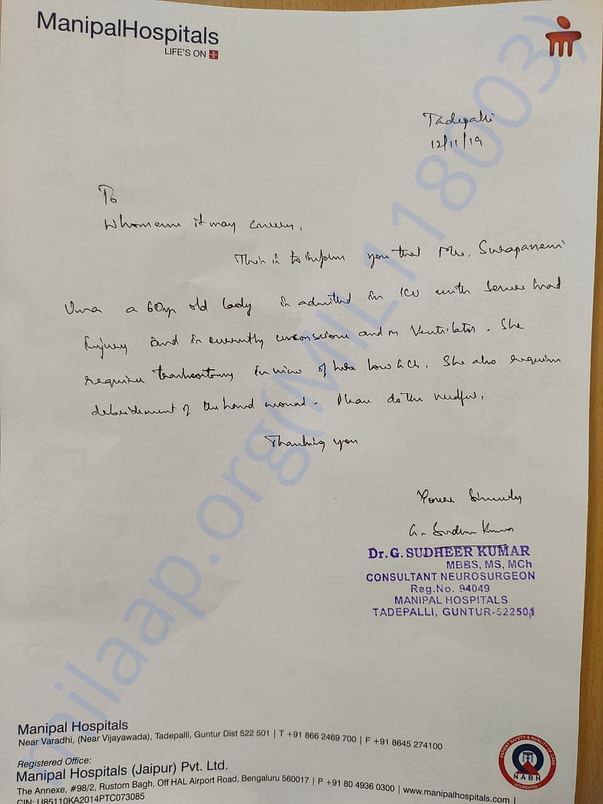 ManipalHospitals
LIFE'S ON
Tadepalli
12/11/19
To
Whomever it may concern,
This is to inform you that Mrs. Surapaneni
Uma a 60yr old lady is admitted in ICU with Severe head
injury and is currently unconscious and on Ventilator. She
requires tracheostomy in view of her low GCS. She also requires
debridement of the hand wound. Please do the needful.
Thanking you
Yours Sincerely
G. Sudheer Kumar
Dr. G. SUDHEER KUMAR
MBBS, MS, MCh
CONSULTANT NEUROSURGEON
Reg.No. 94049
MANIPAL HOSPITALS
TADEPALLI, GUNTUR-522501
milaap.org(MIL1118003)
Manipal Hospitals
Near Varadhi, (Near Vijayawada), Tadepalli, Guntur Dist 522 501 | T +91 866 2469 700 | F +91 8645 274100
Registered Office:
Manipal Hospitals (Jaipur) Pvt. Ltd.
The Annexe, #98/2, Rustom Bagh, Off HAL Airport Road, Bengaluru 560017 | P +91 80 4936 0300 | www.manipalhospitals.com
CIN: U85110KA2014PTC073085
NABH